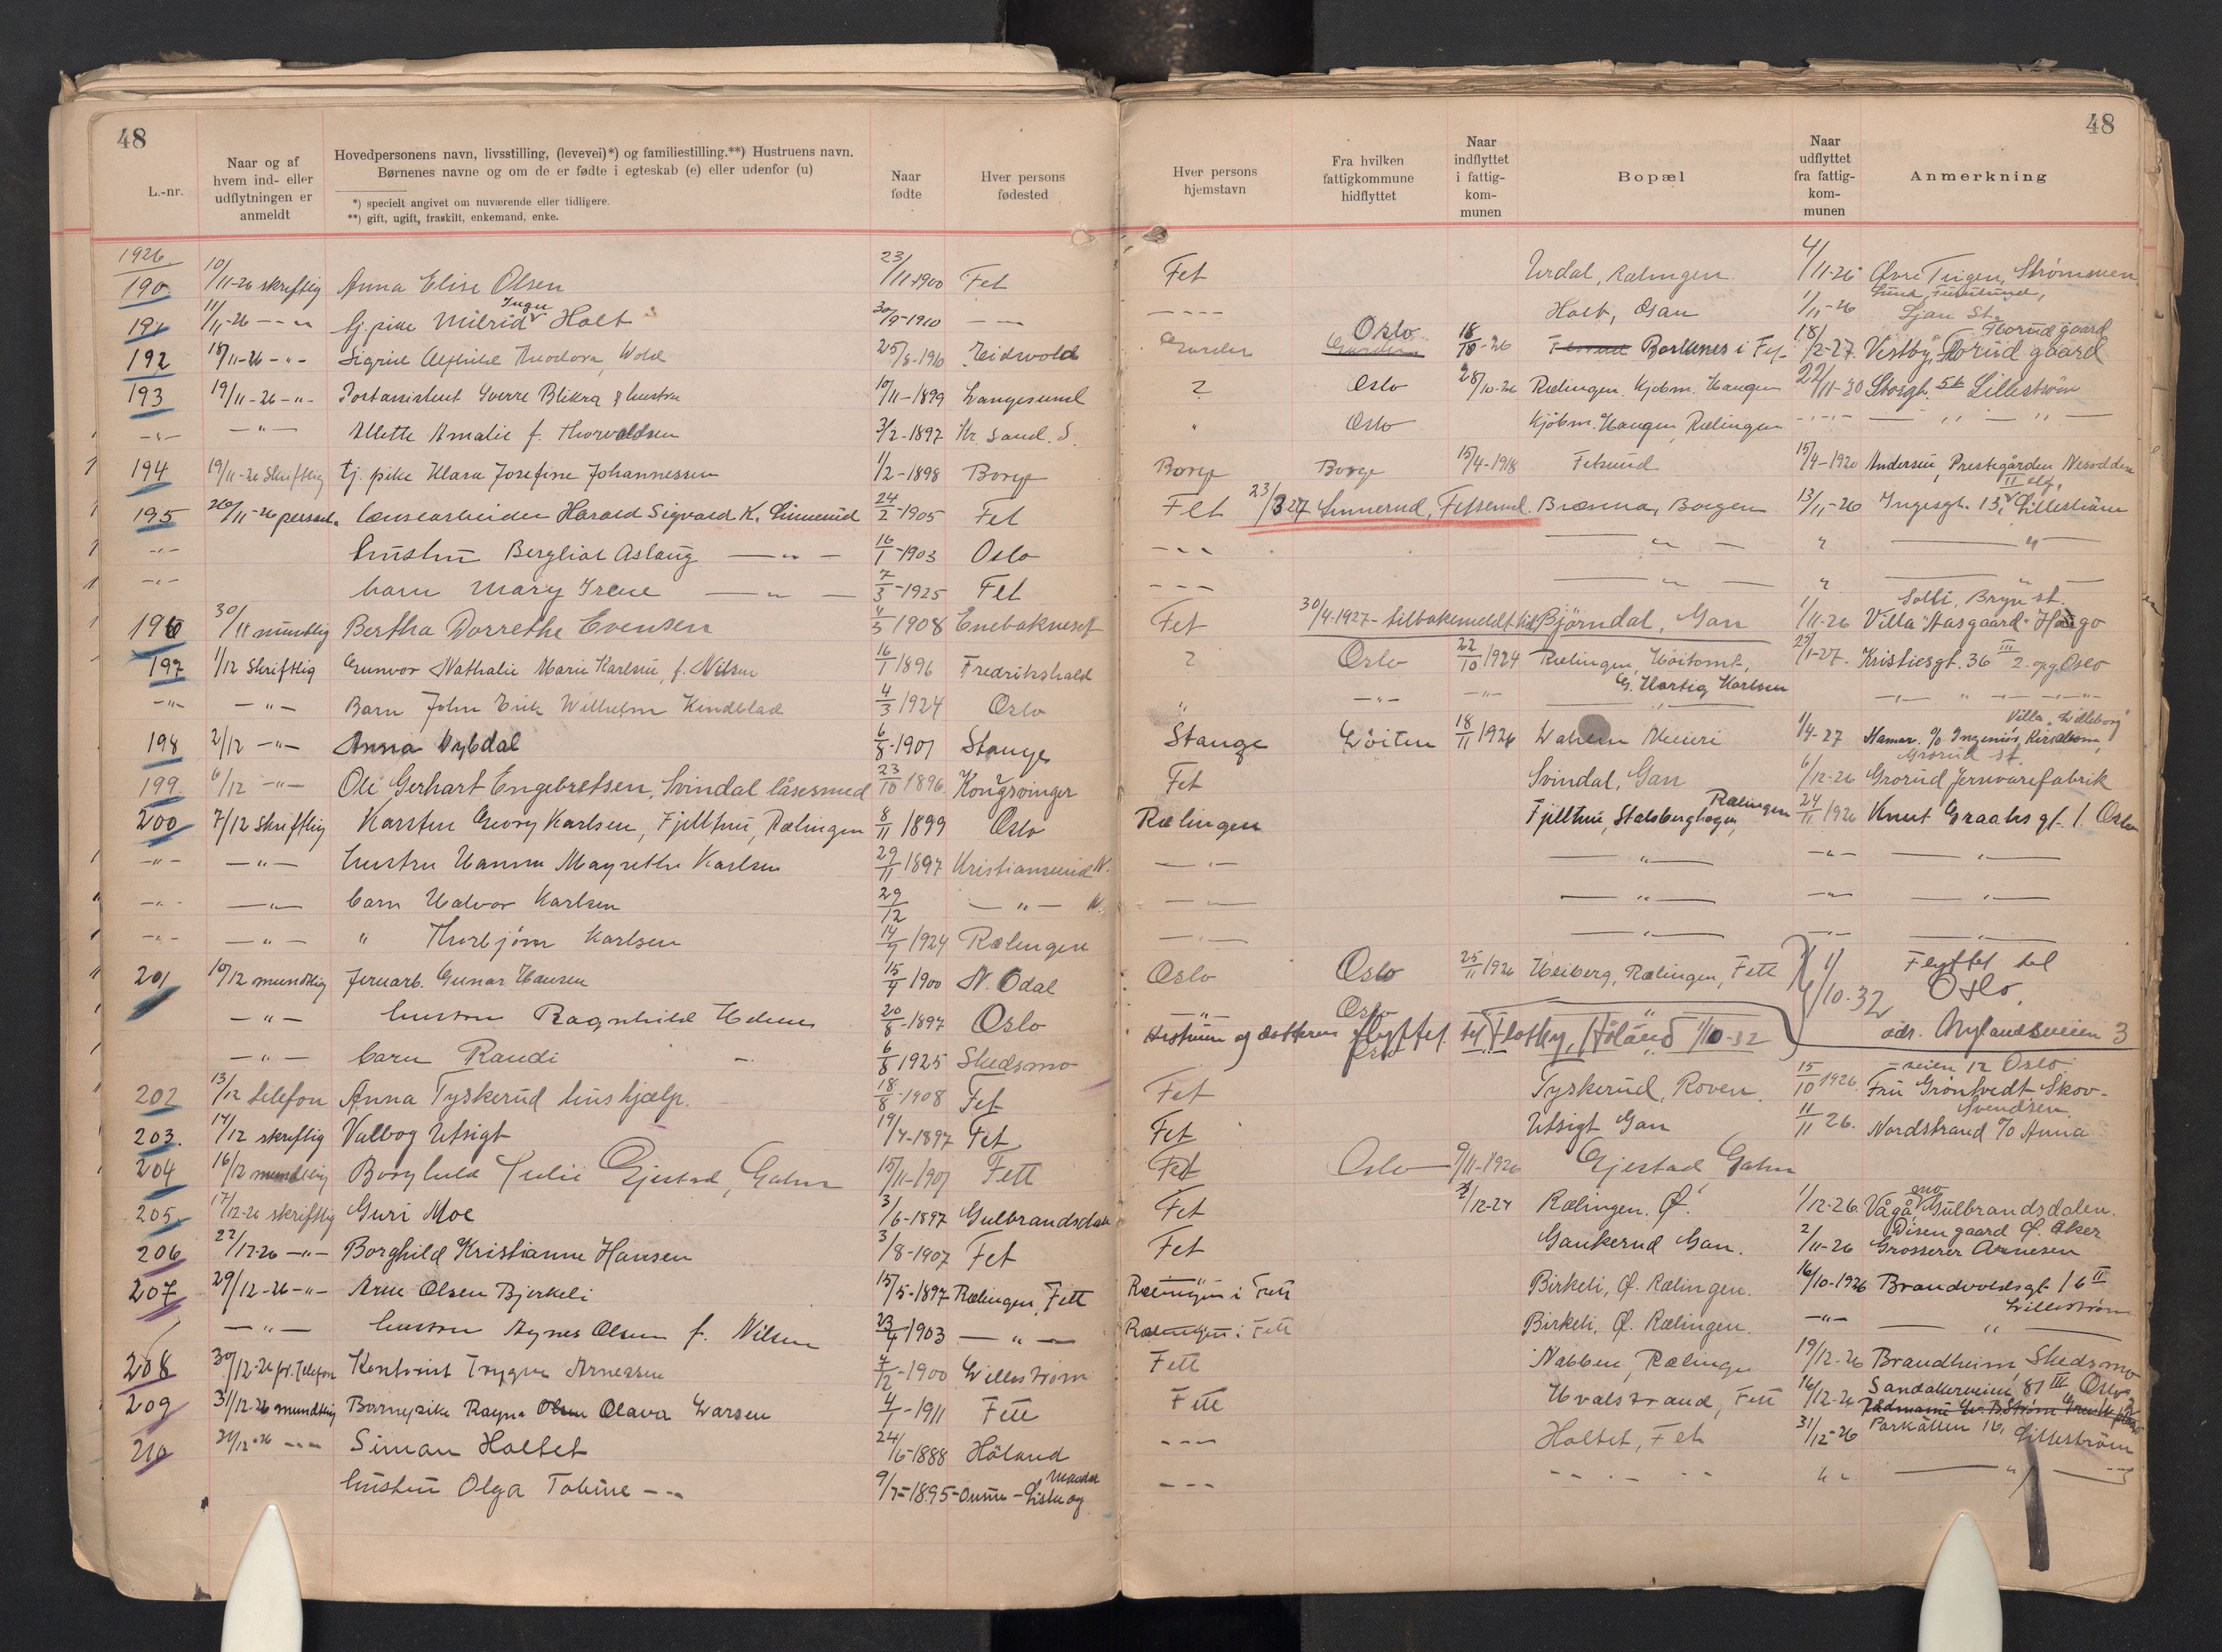 48
L.-nr.
Naar og af hvem ind- eller udflytningen er anmeldt
Hovedpersonens navn, livsstilling, (levevei)*) og familiestilling.**) Hustruens navn.
Børnenes navne og om de er fødte i egteskab (e) eller udenfor (u)
*) specielt angivet om nuværende eller tidligere.
**) gift, ugift, fraskilt, enkemand, enke.
Naar fødte
Hver persons fødested
Hver persons hjemstavn
Fra hvilken fattigkommune hidflyttet
Naar indflyttet i fattig-kom-munen
Bopæl
Naar udflyttet fra fattig-kom-munen
Anmerkning
48
1926
190 10/11-26 skriftlig Anna Elise Olsen 23/11 1900 Fet Fet Urdal, Rælingen 4/11-26 Øvre Teigen, Strømmen
191 11/11-26 — " — tj. pike Milrid Inga Holt 30/9-1910 — — — — — Holt, Gan 1/11-26 Ljan St.
192 18/11-26 - " - Sigrid Theodora Wold 25/8-1910 Eidsvold Oslo 18/10-26 i Fet 18/2-27 Vestby, Florud gaard
193 19/11-26 - " - Postassistent Sverre Blikra & hustru 10/11-1899 Langesund ? Oslo 28/10-26 Rælingen Kjøbm. Haugen 22/11-30 Storgt. 5b Lillestrøm
- " - - " - Allette Amalie f. Thorvaldsen 3/2-1897 Kr. sand. S. " Oslo Kjøbm. Haugen, Rælingen — " — " —
194 19/11-26 Skriftlig tj. pike Klara Josefine Johannessen 1/2-1898 Borge Borge Borge 15/4-1918 Fetsund 15/4-1920 Andersen, Prestegården Nesodden
195 20/11-26 personl. lænsearbeider Harald Sigvard K. Linnerud 24/2-1905 Fet Fet 23/3 27 Linnerud, Fetsund. Brænna, Borgen 13/11-26 Ingesgt. 13, II elg. Lillestrøm
- " - hustru Bergliot Aslaug — " — 16/1-1903 Oslo - - - — " — " — " —
- " - barn Mary Irene — " — 7/3-1925 Fet - - - — " — " — " —
196 30/11 mundtlig Bertha Dorrethe Evensen 4/5 1908 Enebakneset Fet 30/4-1927 - tilbakemeldt til Bjørndal, Gan 1/11-26 Villa "Aasgaard" Hauge Solli, Bryn st.
197 1/12 Skriftlig Gunvor Nathalie Marie Karlsen, f. Nilsen 16/1 1896 Fredrikshald ? Oslo 22/10 1924 Rælingen, Høitomt, G. Hartvig Karlsen 25/1-27. Kristiesgt. 36 III 2. opg Oslo
- " - - " - Barn John Erik Wilhelm Kindblad 4/3 1924 Oslo " - " - - " - — " — - " - " - " -
198 2/12 - " - Anna Nybdal 6/8-1901 Stange Stange Løiten 18/11 1926 Meieri 1/4-27 Hamar. c/o Ingeniør Villa "Lilleborg"
199 6/12 - " - Ole Gerhart Engebretsen, Svindal låsesmed 23/10 1896 Kongsvinger Fet Svindal, Gan 6/12-26 Grorud Jernvarefabrik Grorud st.
200 7/12 Skriftlig Karsten Georg Karlsen, Fjelltun, Rælingen 8/11 1899 Oslo Rælingen Fjelltun, Stalsberghagen, Rælingen 24/11 1926 Knut Graahs gt. 1. Oslo
- " - - " - hustru Hanna Magrethe Karlsen 29/11 1897 Kristiansund N. — " — — " — - " - — " —
- " - - " - barn Halvor Karlsen 29/12 — " — N. — " — — " — - " - — " —
- " - - " - " Thorbjørn Karlsen 14/9 1924 Rælingen — " — — " — - " - — " —
201 10/12 mundtlig Jernarb. Gunnar Hansen 15/4 1900 N. Odal Oslo Oslo 25/11 1926 Heiberg, Rælingen, Fett 1/10-32 Flyttet til Oslo,
- " - hustru Ragnhild Helene 20/8-1897 Oslo - " - Oslo " adr. Nylandsveien 3
- " - barn Randi 6/8 1925 Skedsmo Hustruen og datteren flyttet til Flotby, Høland 1/10-32
202 13/12 telefon Anna Tyskerud hushjælp. 18/8-1908 Fet Fet Tyskerud, Roven. 15/10 1926. Fru Grøntvedt Skov-veien 12 Oslo.
203. 14/12 skriftlig Valbog Utsigt 19/4-1897 Fet Fet Utsigt Gan 11/11 26. Nordstrand c/o Anna Svendsen.
204 16/12 mundtlig Borghild Julie Gjestad, Gahn 15/11-1901 Fett Fet Oslo 9/11-1926 Gjestad Gahn
205. 17/12-26 skriftlig Guri Moe 3/6-1897 Gulbrandsdalen Fet 2/12-24 Rælingen. Ø. 1/12-26. Vågåmo Gulbrandsdalen.
206 22/12-26 - " - Borghild Kristianne Hansen 3/8-1907 Fet Fet Gankerud Gan. 2/11-26 Grosserer Arnesen Disen gaard Ø. Aker
207 29/12-26 - " - Arne Olsen Bjerkeli 15/5-1897 Rælingen, Fett Rælingen i Fett Birkeli, Ø. Rælingen. 16/10-1926 Brandvoldsgt. 16 II Lillestrøm
- " - hustru Agnes Olsen f. Nilsen 23/4 1903 — " — Rælingen i Fett Birkeli, Ø. Rælingen. - " - — " —
208 30/12-26 pr. Telefon Kontorist Trygve Arnesen 7/2-1900 Lillestrøm Fett Nabben, Rælingen 19/12-26 Brandheim, Skedsmo
209 31/12-26 mundtlig Barnepike Ragna Olava Larsen 4/1-1911 Fett Fett Hvalstrand, Fett 16/12-26 Sandakerveien 81 IV Oslo
210 31/12-26 - " - Simon Holtet 24/5-1888 Höland - - - Holtet, Fet 31/12-26 Parkalleen 10, Lillestrøm
hustru Olga Tobine - " - 9/7-1895 - - - — " —